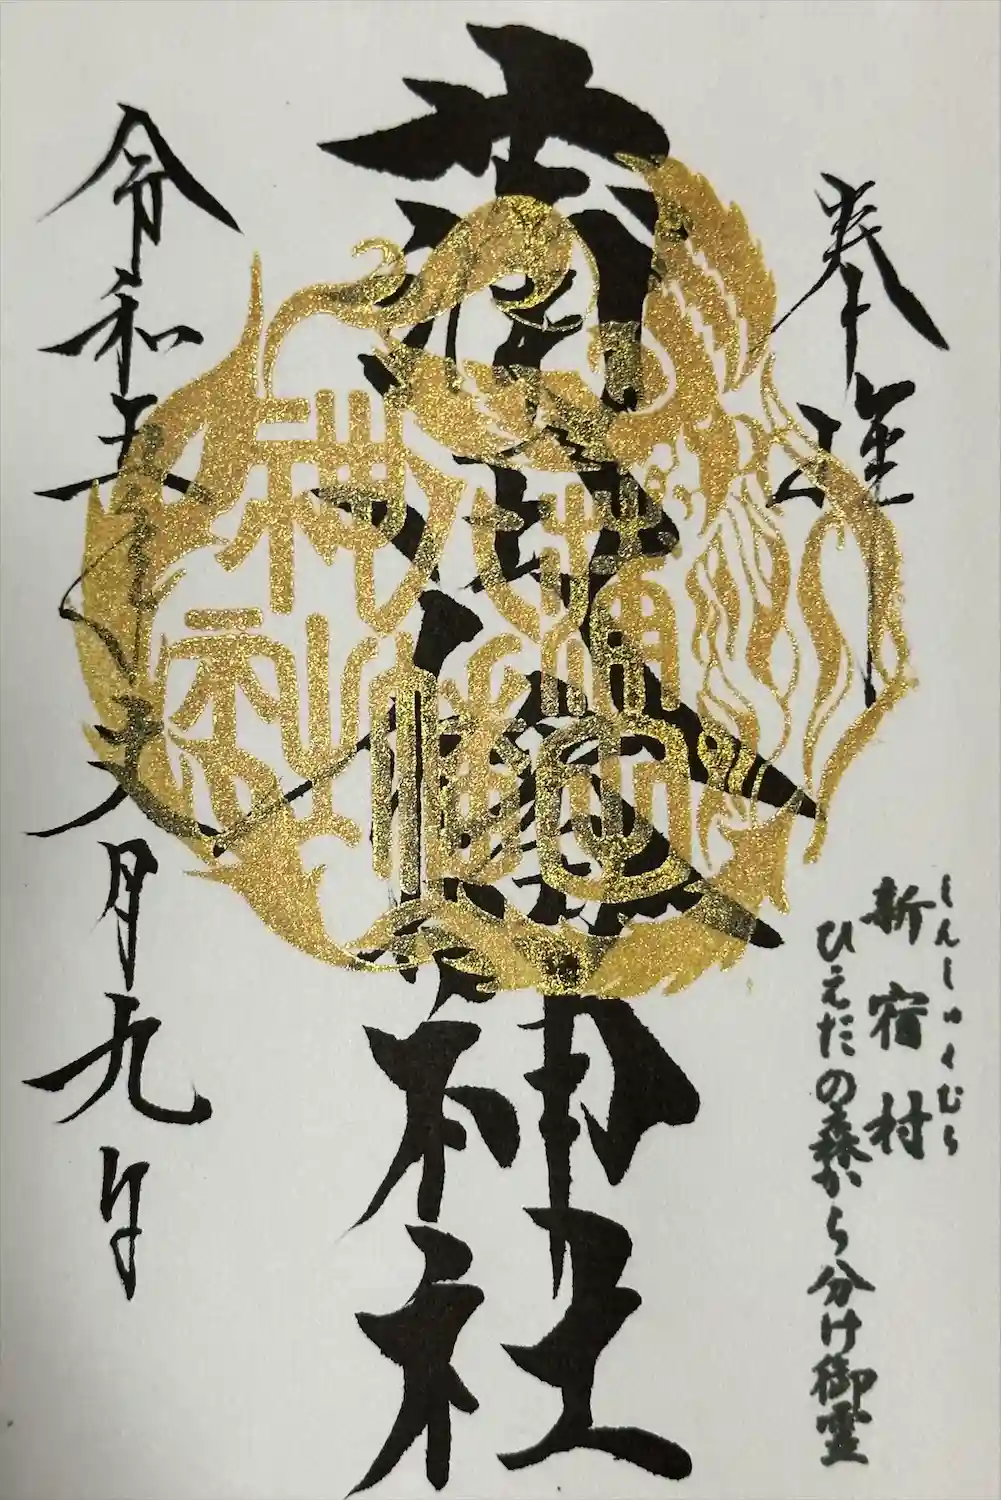 奉拝
新宿村
しんしゅくむら
ひえだの森から分け御霊
蒲田八幡神社
蒲田
八幡
神社
令和五年六月九日